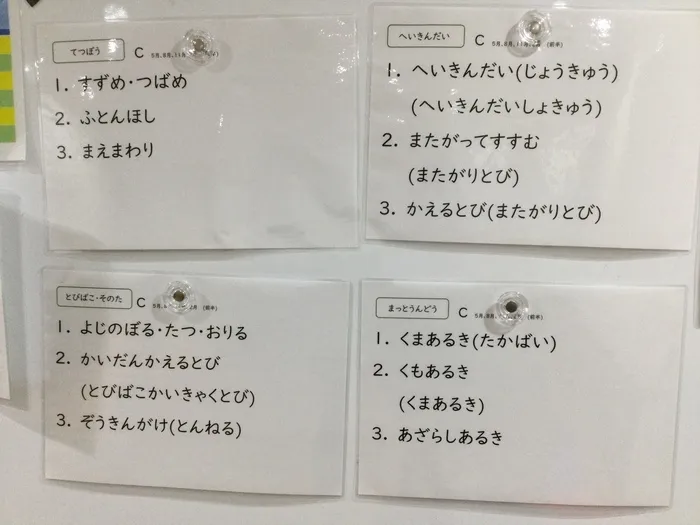 てつぼう C 5月,8月,11月
1. すずめ・つばめ
2. ふとんほし
3. まえまわり
へいきんだい C 5月,8月,11月 (前半)
1. へいきんだい(じょうきゅう)
(へいきんだいしょきゅう)
2. またがってすすむ
(またがりとび)
3. かえるとび(またがりとび)
とびばこ・そのた C 5月 2月 (前半)
1. よじのぼる・たつ・おりる
2. かいだんかえるとび
(とびばこかいきゃくとび)
3. ぞうきんがけ(とんねる)
まっとうんどう C 5月,8月 (前半)
1. くまあるき(たかばい)
2. くもあるき
(くまあるき)
3. あざらしあるき